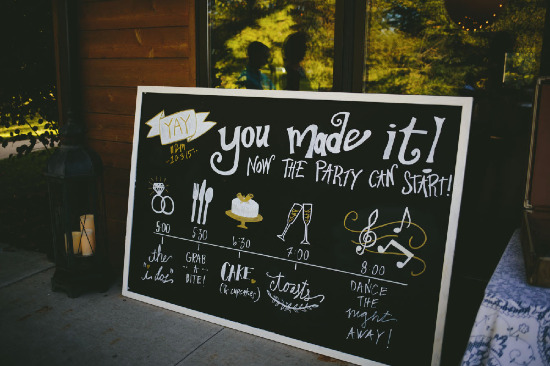 YAY
you made it!
10.3.15
NOW THE PARTY CAN START!
5:00
5:30
6:30
7:00
8:00
the "i do's"
GRAB
A
BITE!
CAKE
(& cupcakes)
Toasts
DANCE
THE
night
AWAY!